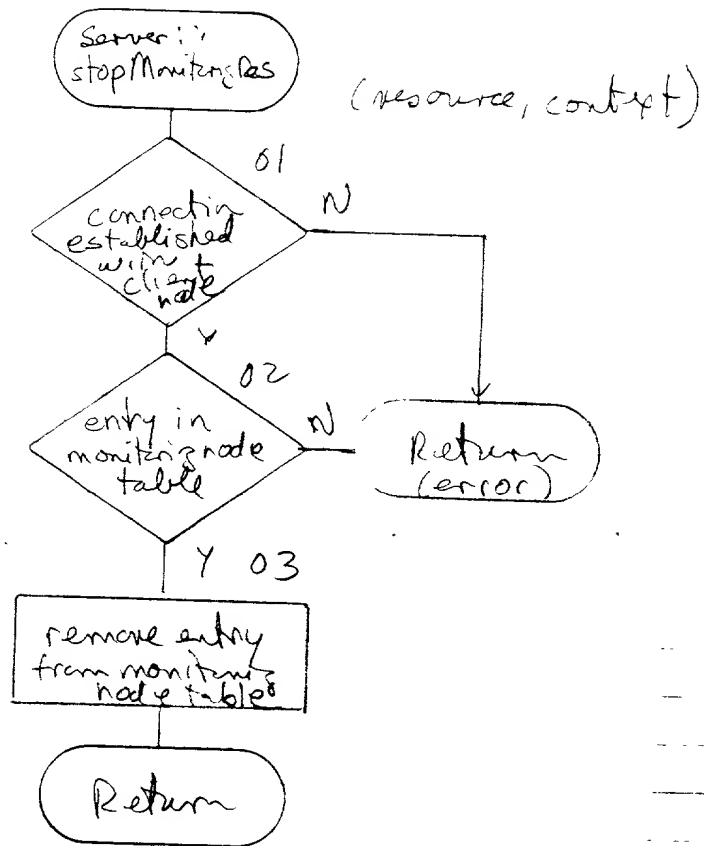 Server::
stopMonitoringRes
(resource, context)
01
connection
established
with
client
node
N
Y
02
entry in
monitoring node
table
N
Return
(error)
Y 03
remove entry
from monitoring
node table
Return